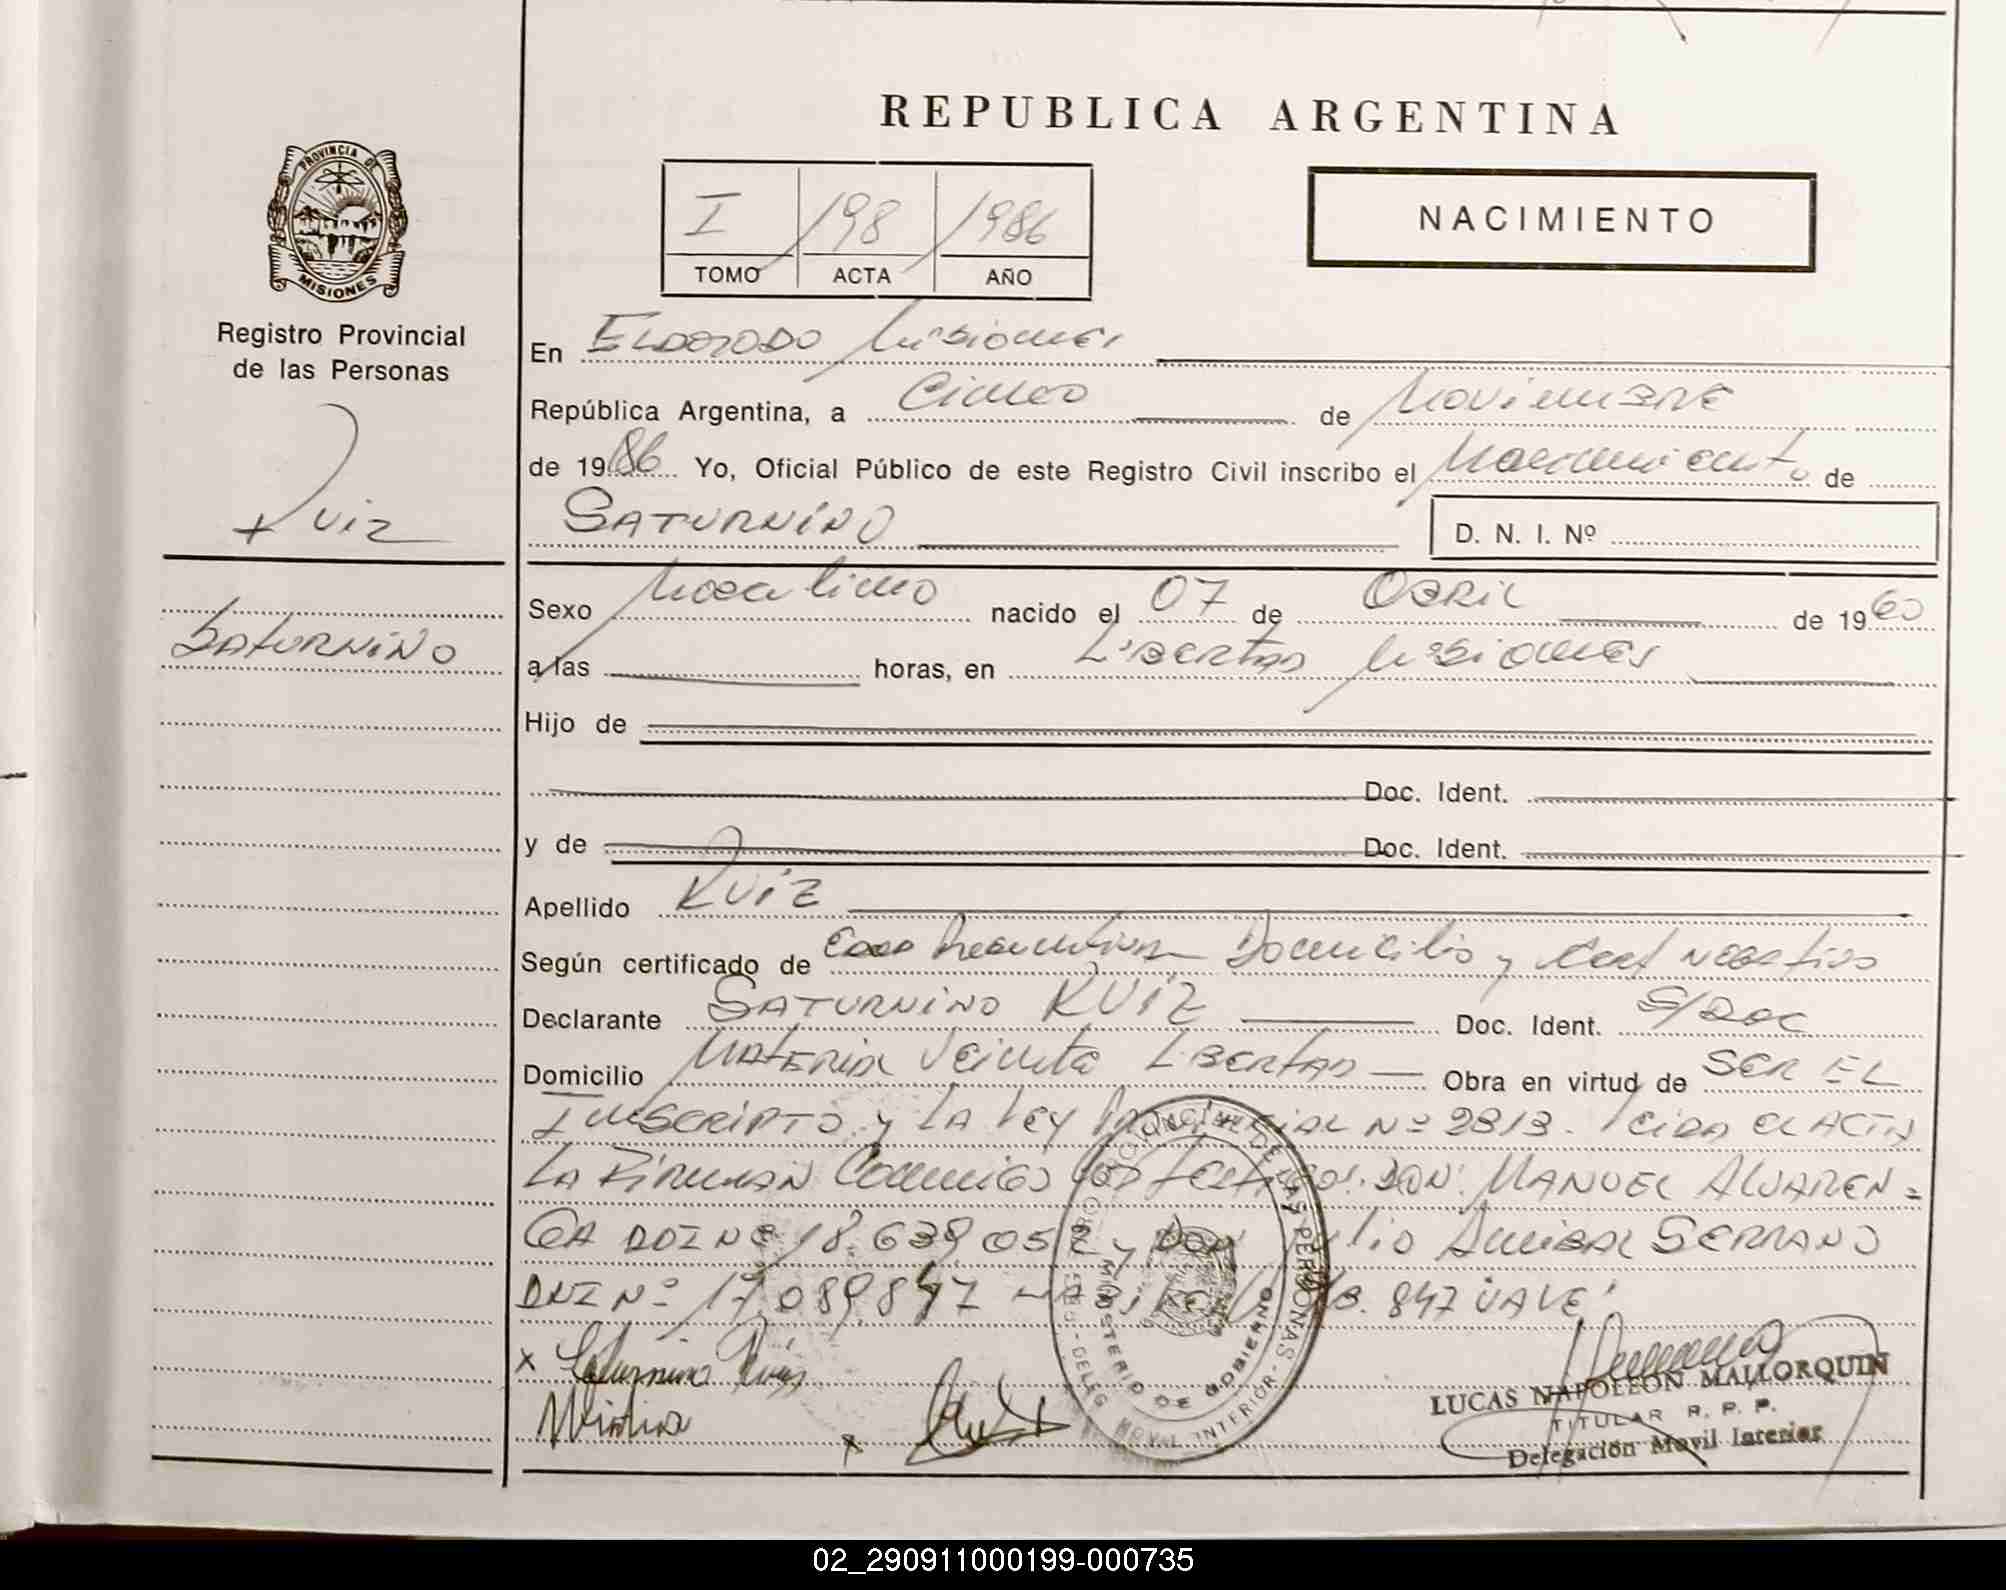 REPUBLICA ARGENTINA
PROVINCIA DE MISIONES
Registro Provincial
de las Personas
Ruiz
Saturnino
I / 198 / 1986
TOMO ACTA AÑO
NACIMIENTO
En Eldorado Misiones
República Argentina, a Cinco de Noviembre
de 1986 Yo, Oficial Público de este Registro Civil inscribo el Nacimiento de
SATURNINO D. N. I. Nº
Sexo Masculino nacido el 07 de Abril de 1960
a las horas, en Libertad Misiones
Hijo de
Doc. Ident.
y de Doc. Ident.
Apellido RUIZ
Según certificado de Edad Presuntiva Domicilio y Cert Negativo
Declarante SATURNINO RUIZ Doc. Ident. S/Doc
Domicilio Libertad Obra en virtud de SER EL
INSCRIPTO y LA LEY Provincial Nº 2813. Leida el ACTA
LA FIRMAN Conmigo los testigos: DON: MANUEL ALVAREN=
GA DNI Nº 18.639.052 y DON Julio Anibal SERRANO
DNI Nº 17.089.847 847 "VALE"
x Saturnino Ruiz
x
REGISTRO PROVINCIAL DE LAS PERSONAS - DELEG. MOVIL INTERIOR - MINISTERIO DE GOBIERNO
LUCAS NAPOLEON MALLORQUIN
TITULAR R. P. P.
Delegación Movil Interior
02_290911000199-000735